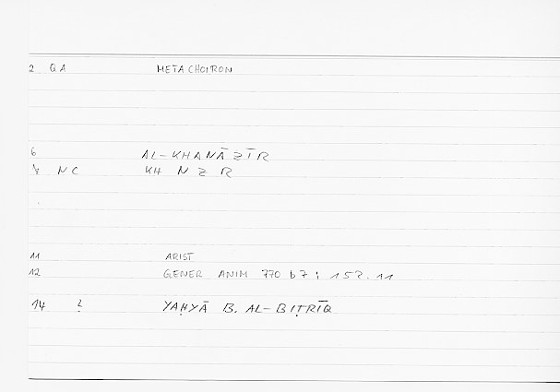 2 QA METACHOIRON
6 AL-KHANĀZĪR
NC KH N Z R
11 ARIST
12 GENER ANIM 770 b 7 ; 152.11
14 ? YAḤYĀ B. AL-BIṬRĪQ